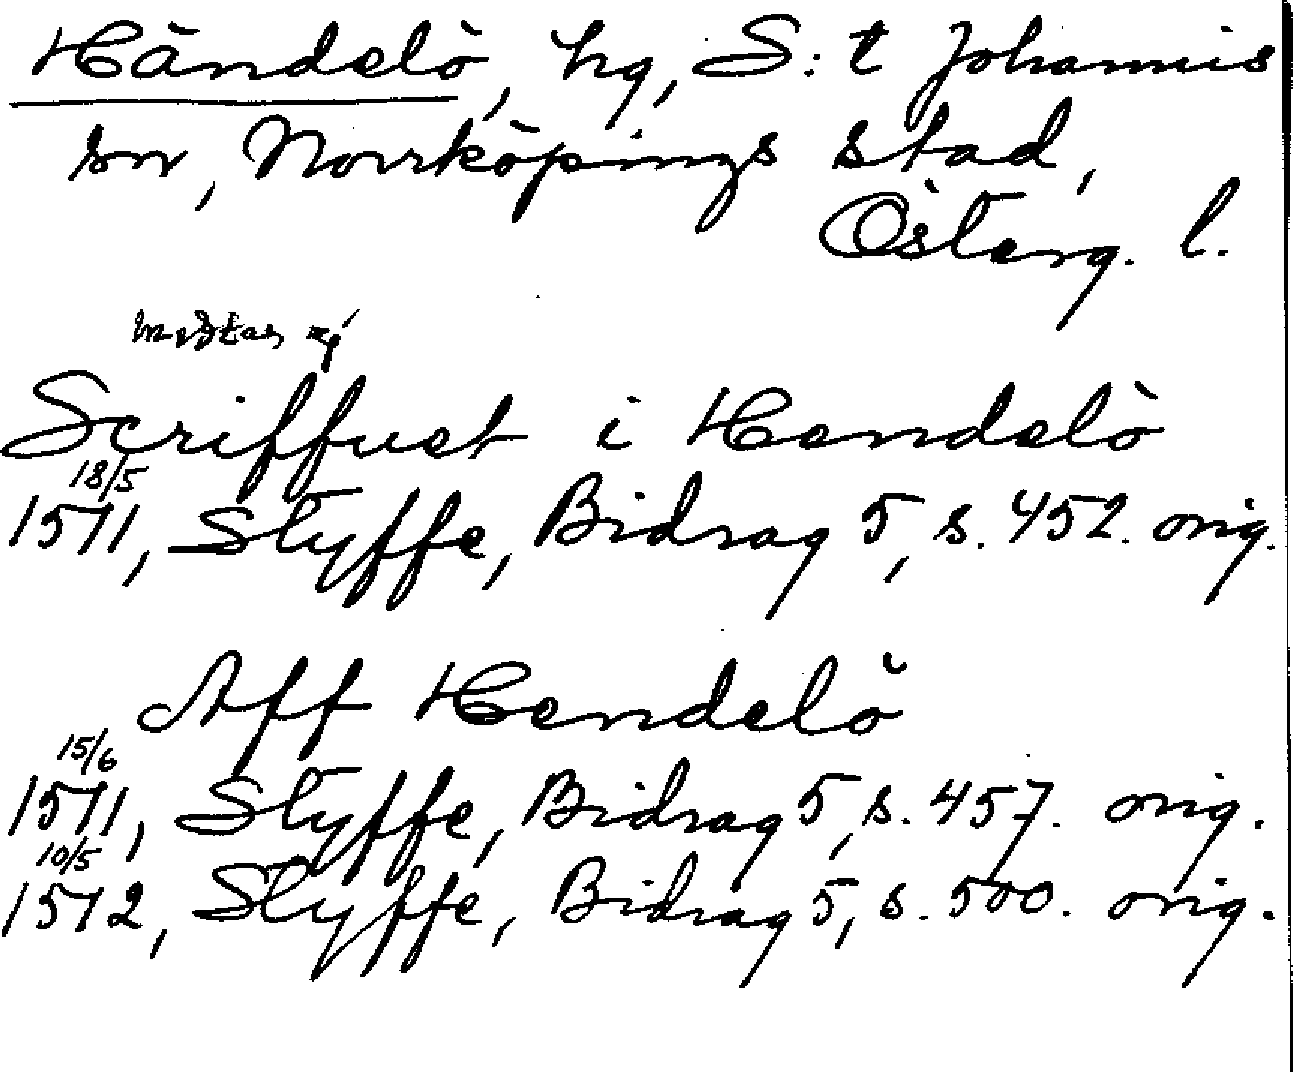 Händelö, hg, S:t Johannis
sn, Norrköpings stad,
Österg. l.
medtas ej
Scriffuet i Hendelö
18/5
1511, Styffe, Bidrag 5, s. 452. orig.
Aff Hendelö
15/6
1511, Styffe, Bidrag 5, s. 457. orig.
10/5
1512, Styffe, Bidrag 5, s. 500. orig.